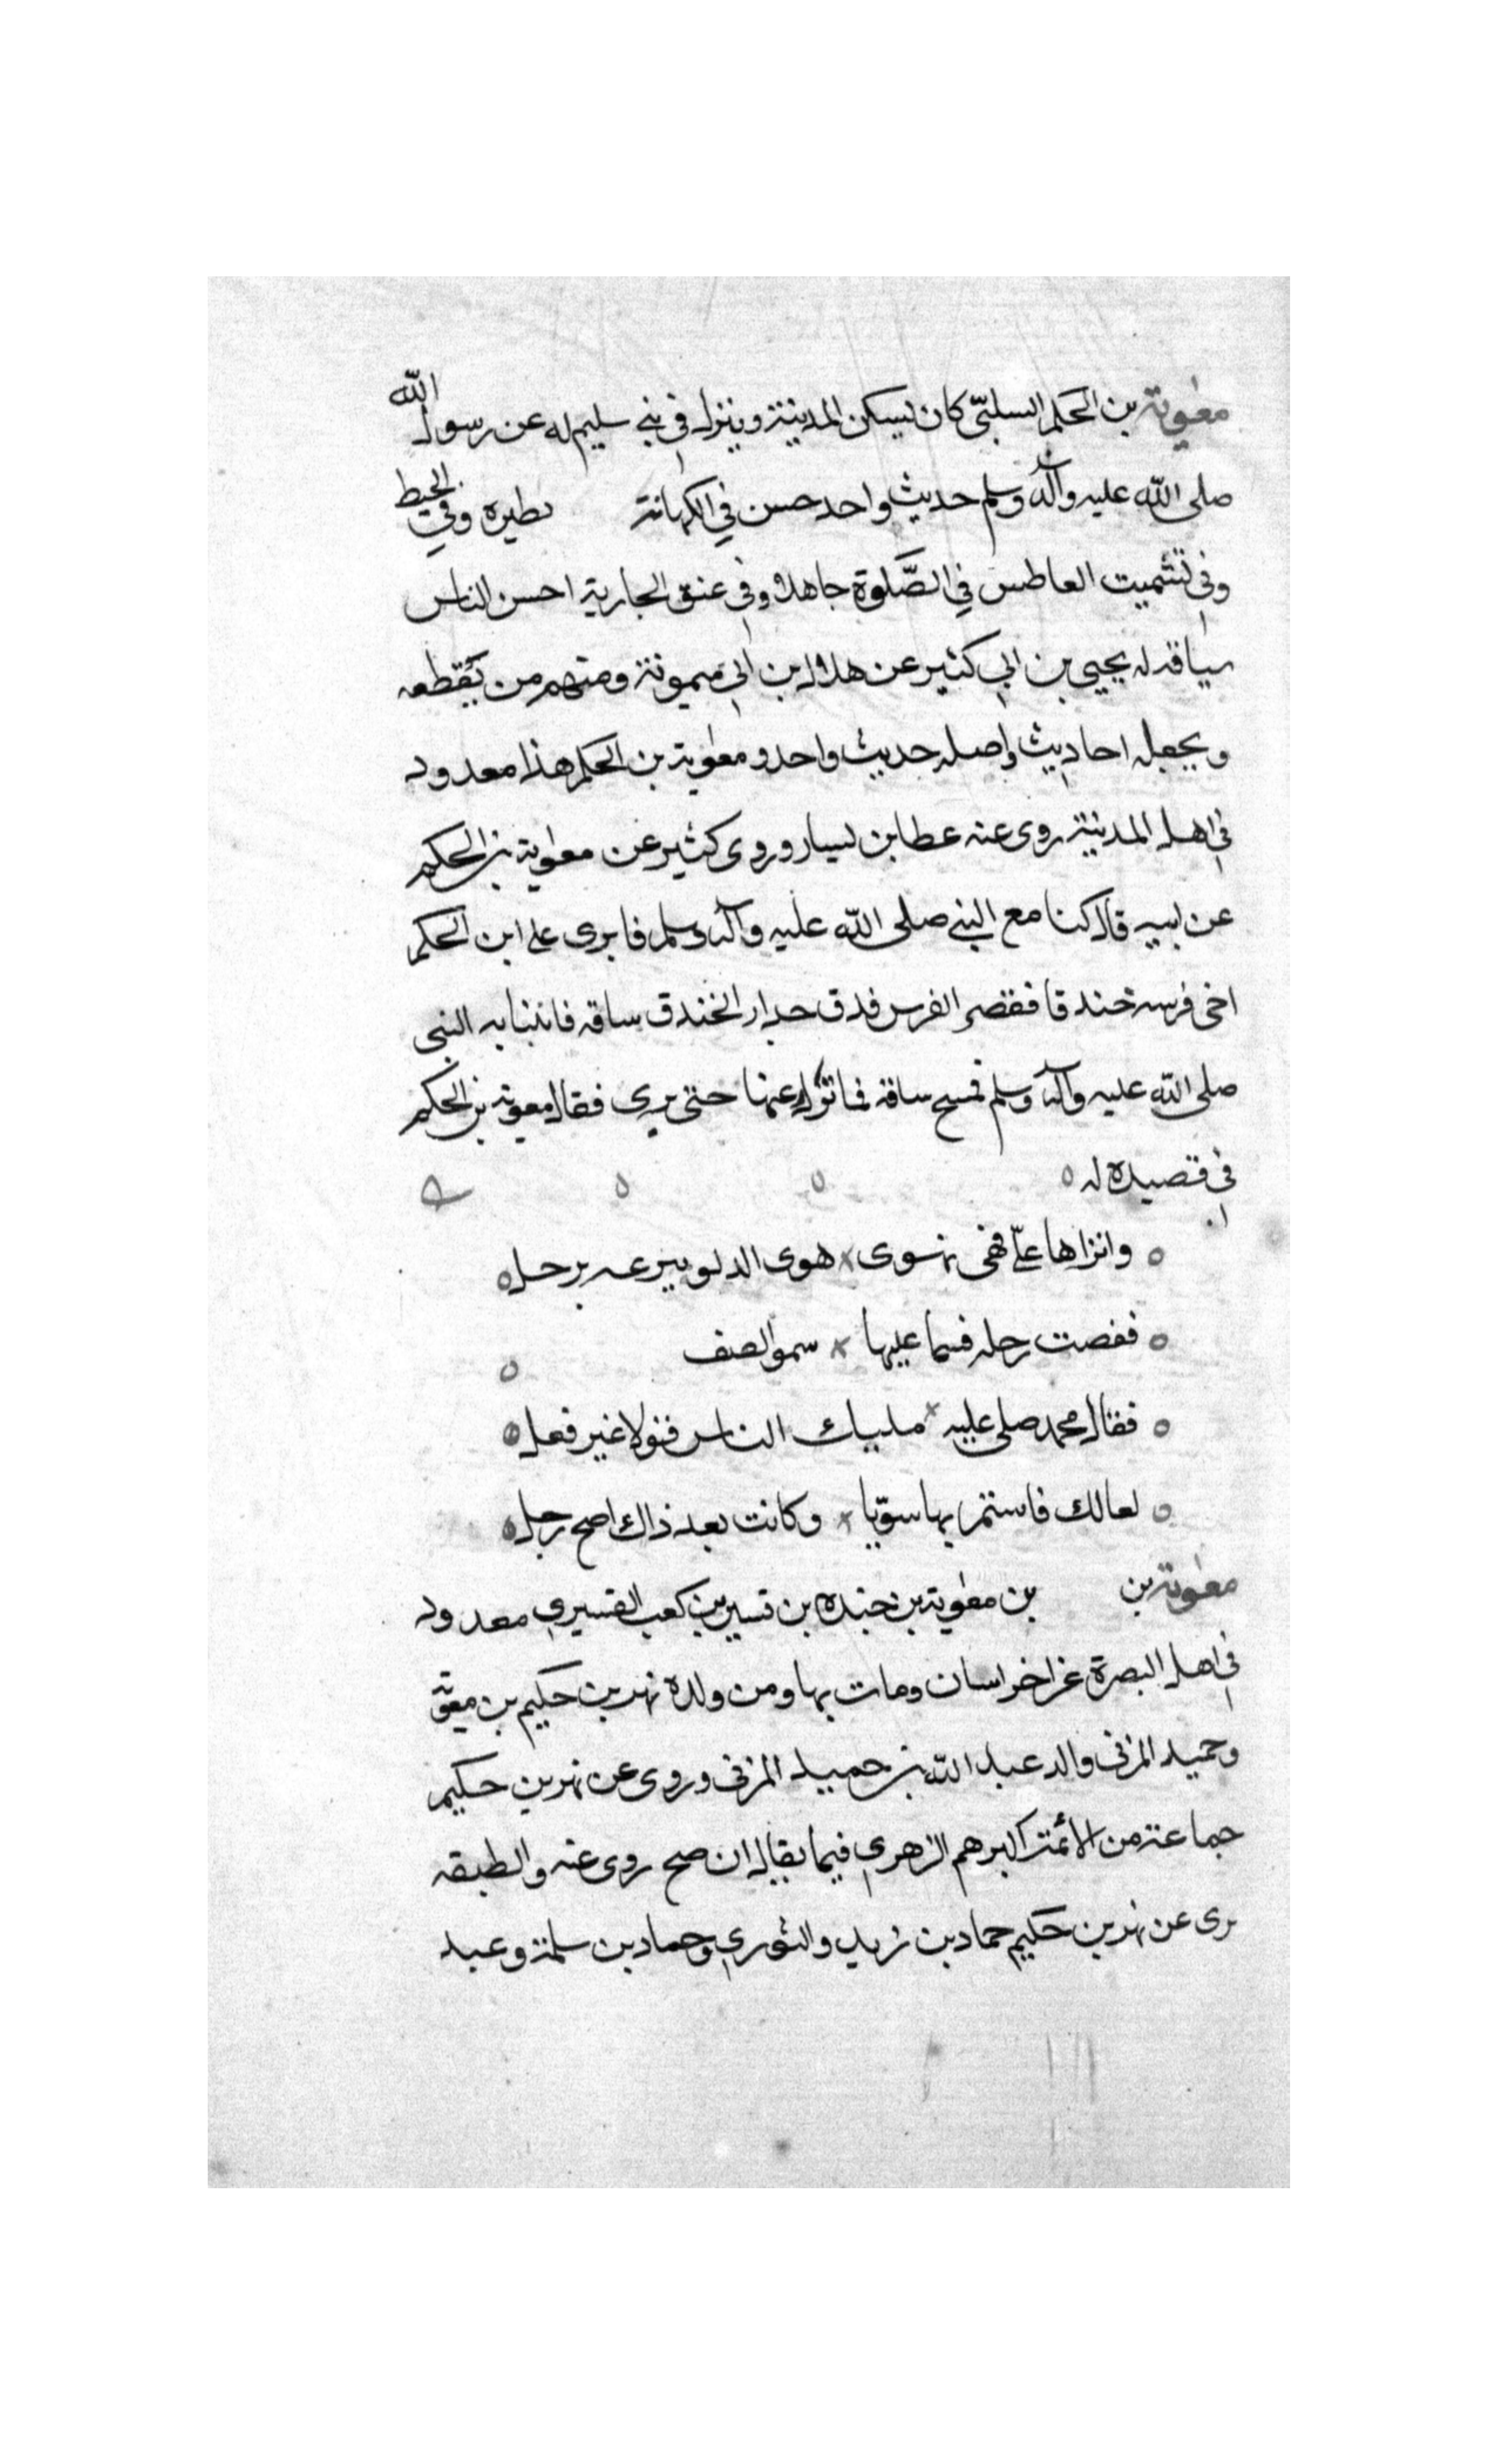 معوية بن الحكم السلمي كان يسكن المدينة وينزل في بني سليم له عن رسول الله
صلى الله عليه وآله وسلم حديث واحد حسن في الكهانة طيره وفي الخيط
وفي تشميت العاطس في الصلوة جاهلا وفي عنق الجارية احسن الناس
سياقه له يحيى بن ابي كثير عن هلال بن ابي ميمونة ومنهم من يقطعه
ويجعله احاديث واصله حديث واحد ومعوية بن الحكم هذا معدود
في اهل المدينة روى عنه عطا بن يسار وروى كثير عن معوية بن الحكم
عن ابيه قال كنا مع النبي صلى الله عليه وآله وسلم فابرى على ابن الحكم
اخى فرسه خندقا فقصر الفرس فدق جدار الخندق ساقه فاتينا به النبي
صلى الله عليه وآله وسلم فمسح ساقه فما نزل عنها حتى برى فقال معوية بن الحكم
في قصيده له
وانزاها علي فهى تهوى هوى الدلو ينزعه برجل
ففصت رجله فسما عليها سمو الصف
فقال محمد صلى عليه مليك الناس قولا غير فعل
لعالك فاستمر بها سويا وكانت بعد ذاك اصح رجل
معوية بن بن معوية بن حيده بن قشير بن كعب القشيري معدود
في اهل البصرة غزا خراسان ومات بها ومن ولده بهز بن حكيم بن معوية
وحميد المزني والد عبد الله بن حميد المزني وروى عن بهز بن حكيم
جماعة من الائمة اكبرهم الزهري فيما يقال ان صح روى عنه والطبقه
يروى عن بهز بن حكيم حماد بن زيد والثوري وحماد بن سلمة وعبد